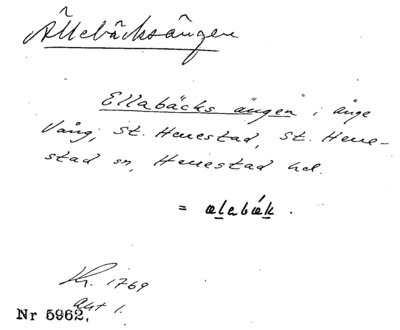 Ällebäcksängen
Ellabäcks ängen i änge
Vång, St. Herrestad, St. Herre-
stad sn, Herrestad hd.
= ælabæk.
Kr. 1769
akt 1.
Nr 5962,